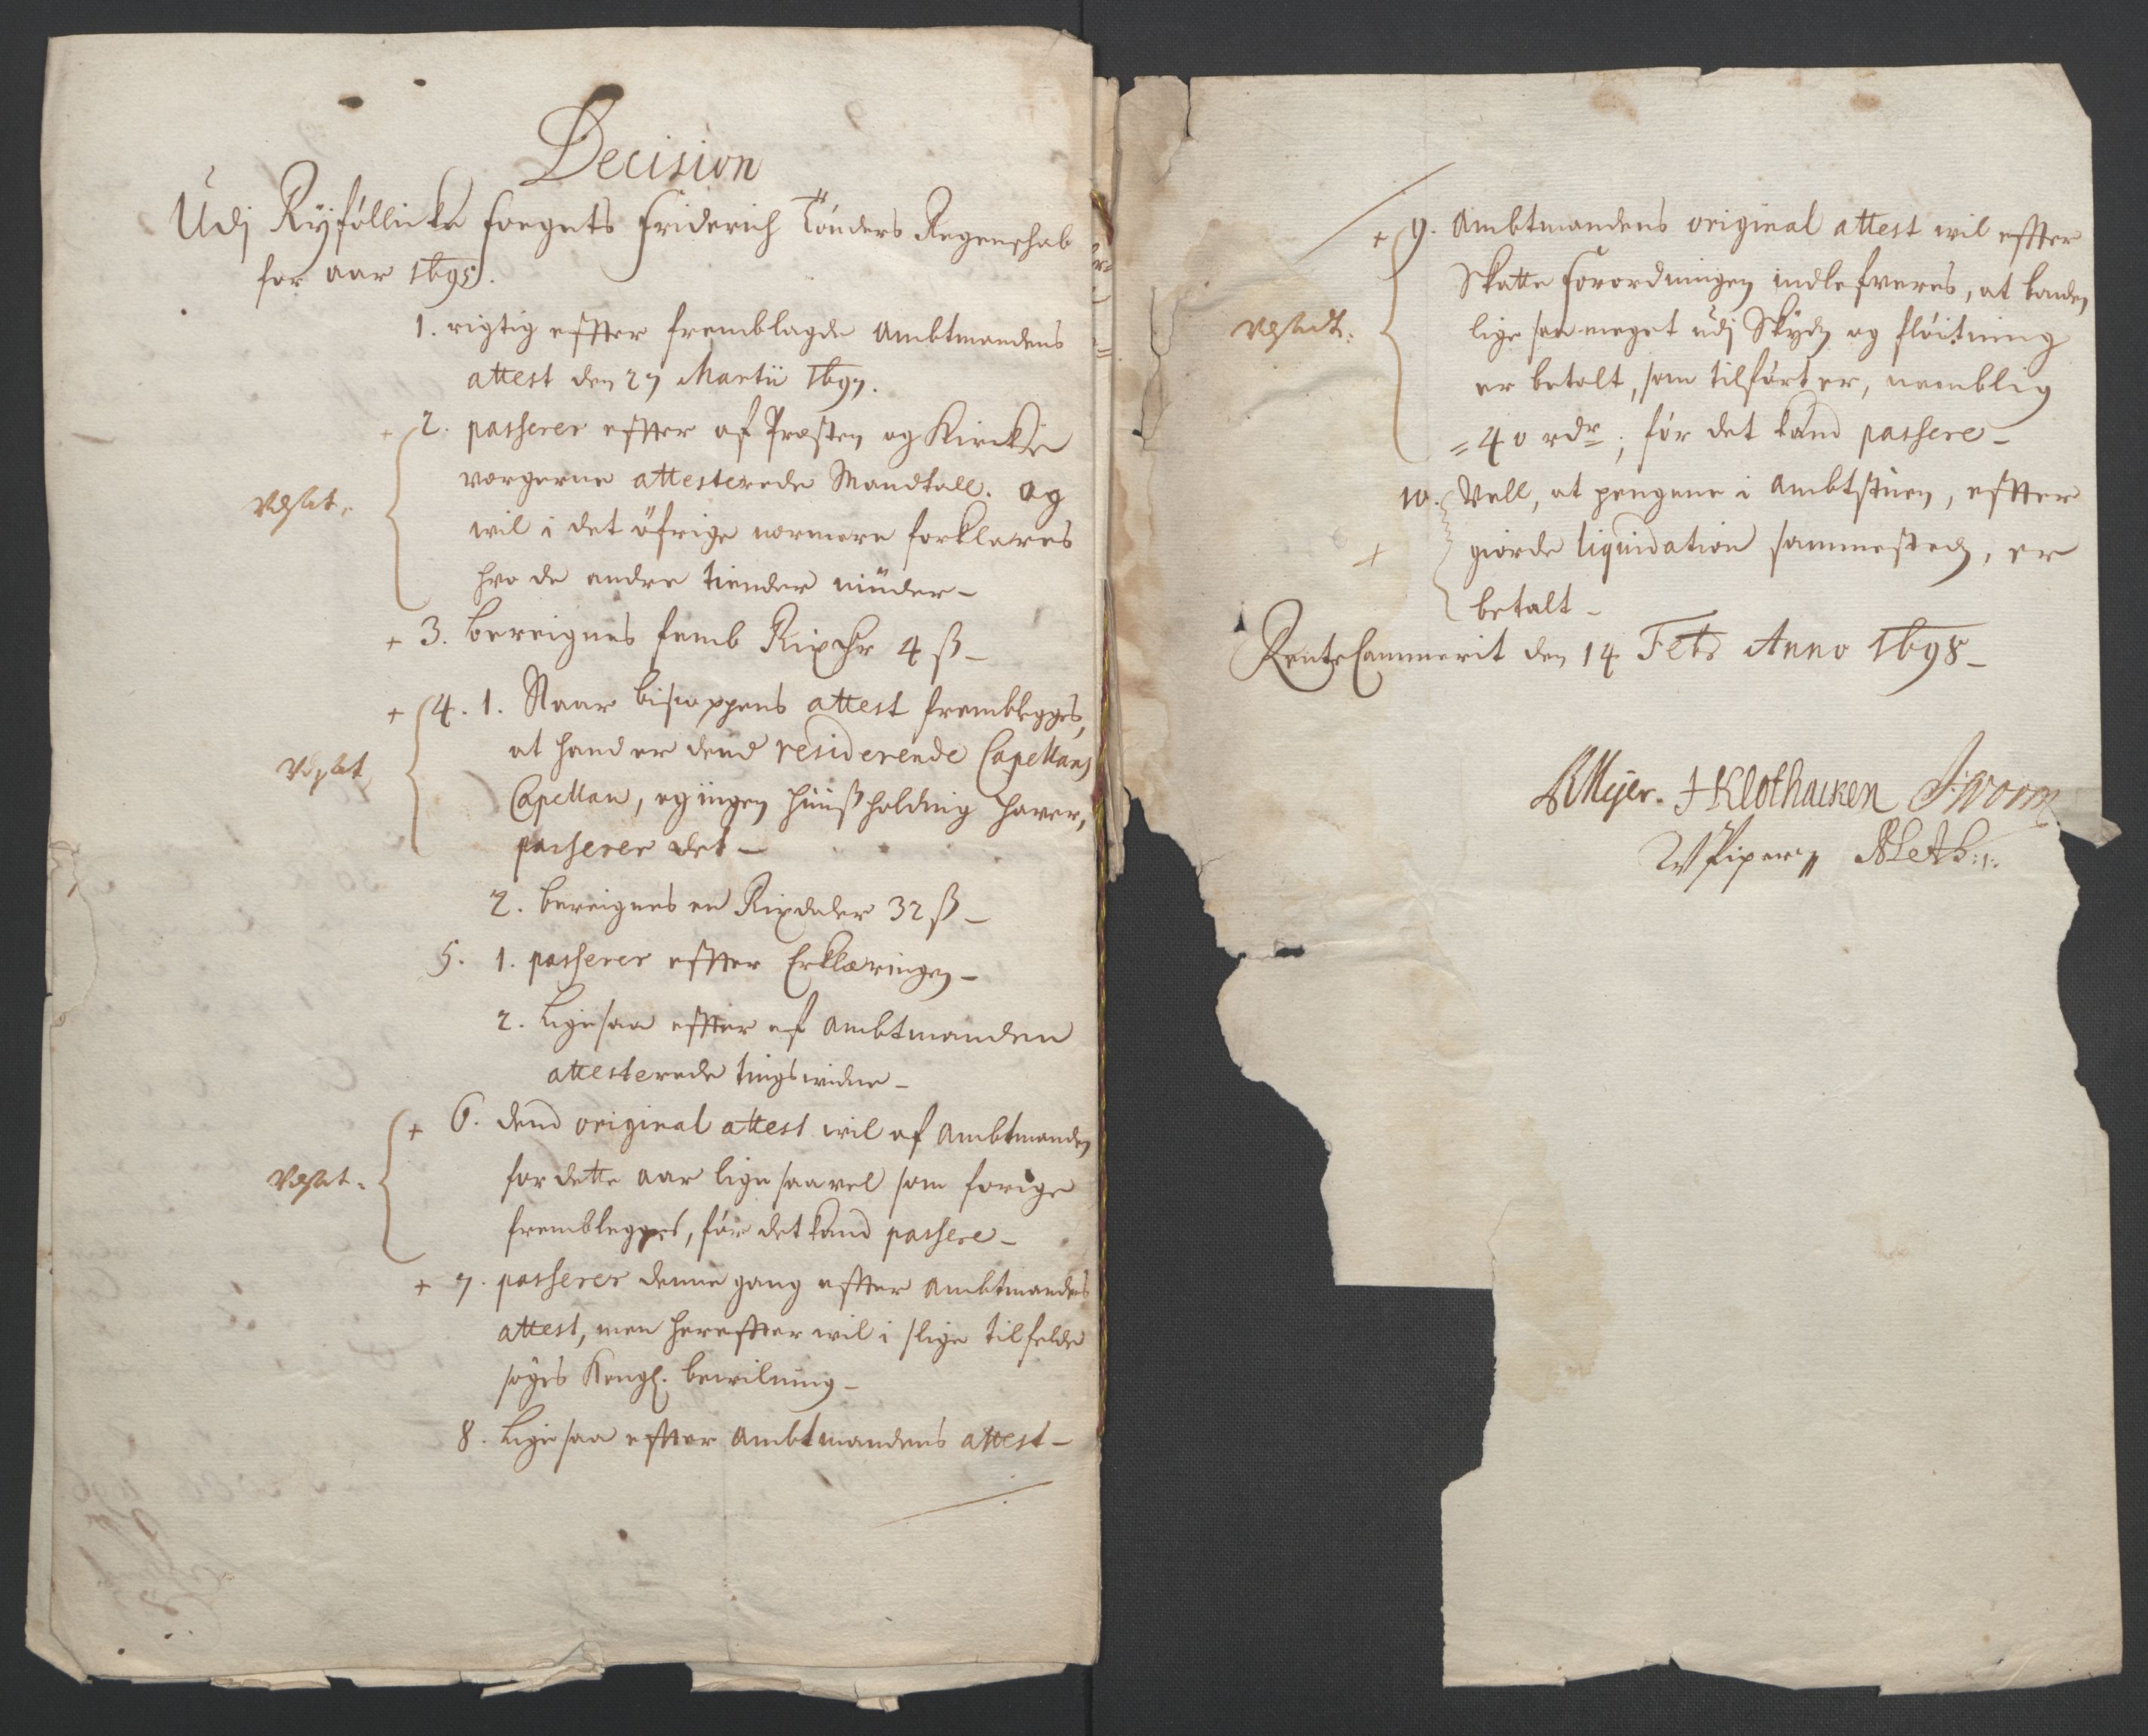 Decision
Udj Ryefölliche fogets Friderich Tönders Regenschab
for aar 1695.
1. rigtig effter fremblagde Ambtmandens
attest den 27 Martii 1697.
+ 2. passerer effter af Præsten og Kircke
vergerne attesterede Mandtall. og
wil i det öfrige nermere forklares
hvo de andre tiender nyder –
+ 3. bereignes femb Rixdlr 4 ß –
+ 4. 1. Naar bispoppens attest fremblegges,
at hand er dend residerende Capellans
Capellan, og ingen huußholdnig haver,
passerer det –
2. bereignes en Rixdaler 32 ß –
5. 1. passerer effter Erklæringen –
2. Ligesaa effter af Ambtmanden
attesterede tingswidne –
+ 6. dend original attest wil af Ambtmanden
for dette aar lige saavel som forige
fremblegges, för det kand passere –
+ 7. passerer denne gang effter Ambtmandens
attest, men hereffter wil i slige tilfelde
söges Kongl. bewilning –
8. Ligesaa effter Ambtmandens attest –
+ 9. Ambtmandens original attest wil effter
Skatte forordningen indlefveres, at bonden
lige saa meget udj Skyds og flöitning
er betalt, som tilfört er, nemblig
= 40 rdr; för det kand passere –
+ 10. Vell, at pengene i Ambtstuen, effter
giorde liquidation sammesteds, er
betalt –
RenteCammerit den 14 Feb Anno 1698 –
Meyer. H Klothacken J Worm
W Piper